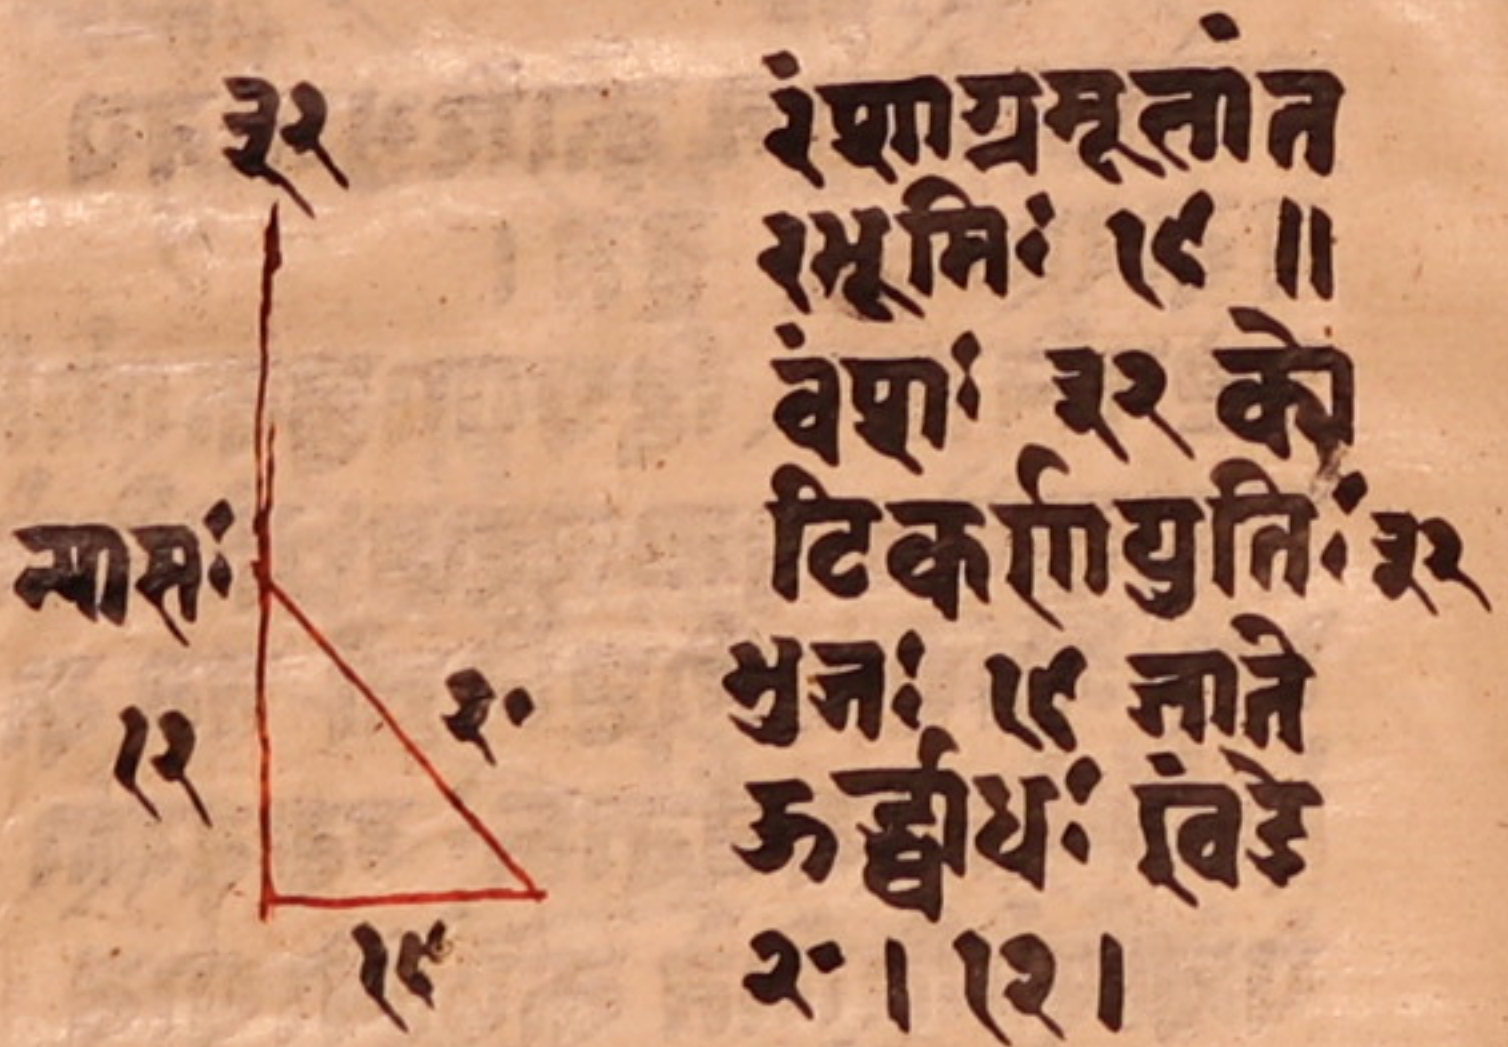 ३२
न्यासः
१२
२०
१६
रंशाग्रमूलांत
रभूमिः १६ ॥
वंशः ३२ को
टिकर्णयुतिः ३२
भुजः १६ जाते
ऊर्द्ध्वाधः खंडे
२०।१२।